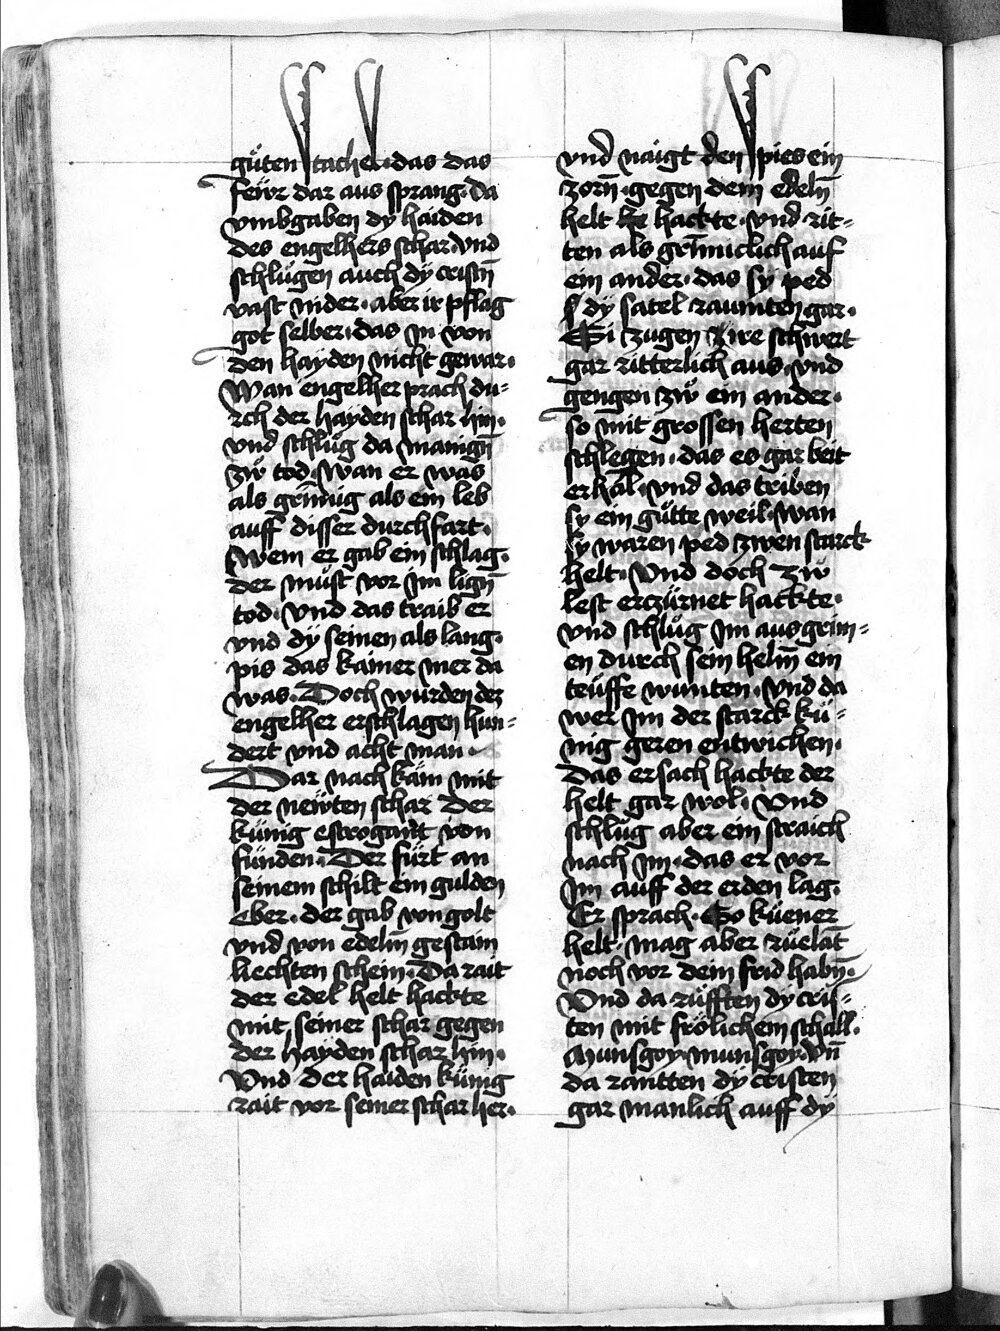 güten stachel · das das
feẅr dar aus sprang · da
vmbgaben dÿ haiden
des engelhers schar · vnd
schlügen auch dÿ cristñ
vast nider · aber ir pflag
got selber · das jn von
den hayden nicht gewar ·
Wan engelher prach du-
rch der hayden schar hin ·
vnd schlüg da manigñ
zẅ tod · wan er was
als grim̄ig als ein leb
auff disser durchfart ·
Wem er gab ein schlag ·
der müst vor jm lign̄
tod · vnd das traib er
vnd dÿ seinen als lang ·
pis das kainer mer da
was · Doch wurden der
engelher erschlagen hun-
dert vnd acht man ·
Dar nach kam mit
der newten schar Der
künig estrogant von
fünden · Der fürt an
seinem schilt ein gulden
eber · der gab von golt
vnd von edelm̄ gestain
liechten schein · Da rait
der edel helt hackte
mit seiner schar gegen
der hayden schar hin ·
Vnd Der haiden künig
rait vor seiner schar her ·
vnd naigt den spies ein
zorñ · gegen dem edelñ
helt hackte · vnd rit-
ten als grim̄iclich auf
ein ander · das sÿ ped
dÿ satel raumten gar ·
Si zugen ire schwert
gar ritterlich aus · vnd
gengen zẅ ein ander ·
so mit grossen herten
schlegen · das es gar beit
erhal · vnd das triben
sÿ ein gütte weil · wan
sÿ waren ped zwen starck
helt · Vnd doch zẅ
lest erczürnet hackte ·
vnd schlüg jm aus grim-
en durch sein helm̄ ein
teüffe wunten · vnd da
wer jm der starck kü-
nig geren entwichen ·
das ersach hackte der
helt gar wol · Vnd
schlüg aber ein straich
nach jm · das er vor
jm auff der erden lag ·
Er sprach · So küener
helt · mag aber rüelant
noch vor dein frid habñ ·
Vnd da rüfften dÿ cris-
ten mit frölichem schall ·
Munsgoy · munsgoy · Vn̄
da rantten dÿ cristen
gar manlich auff dÿ